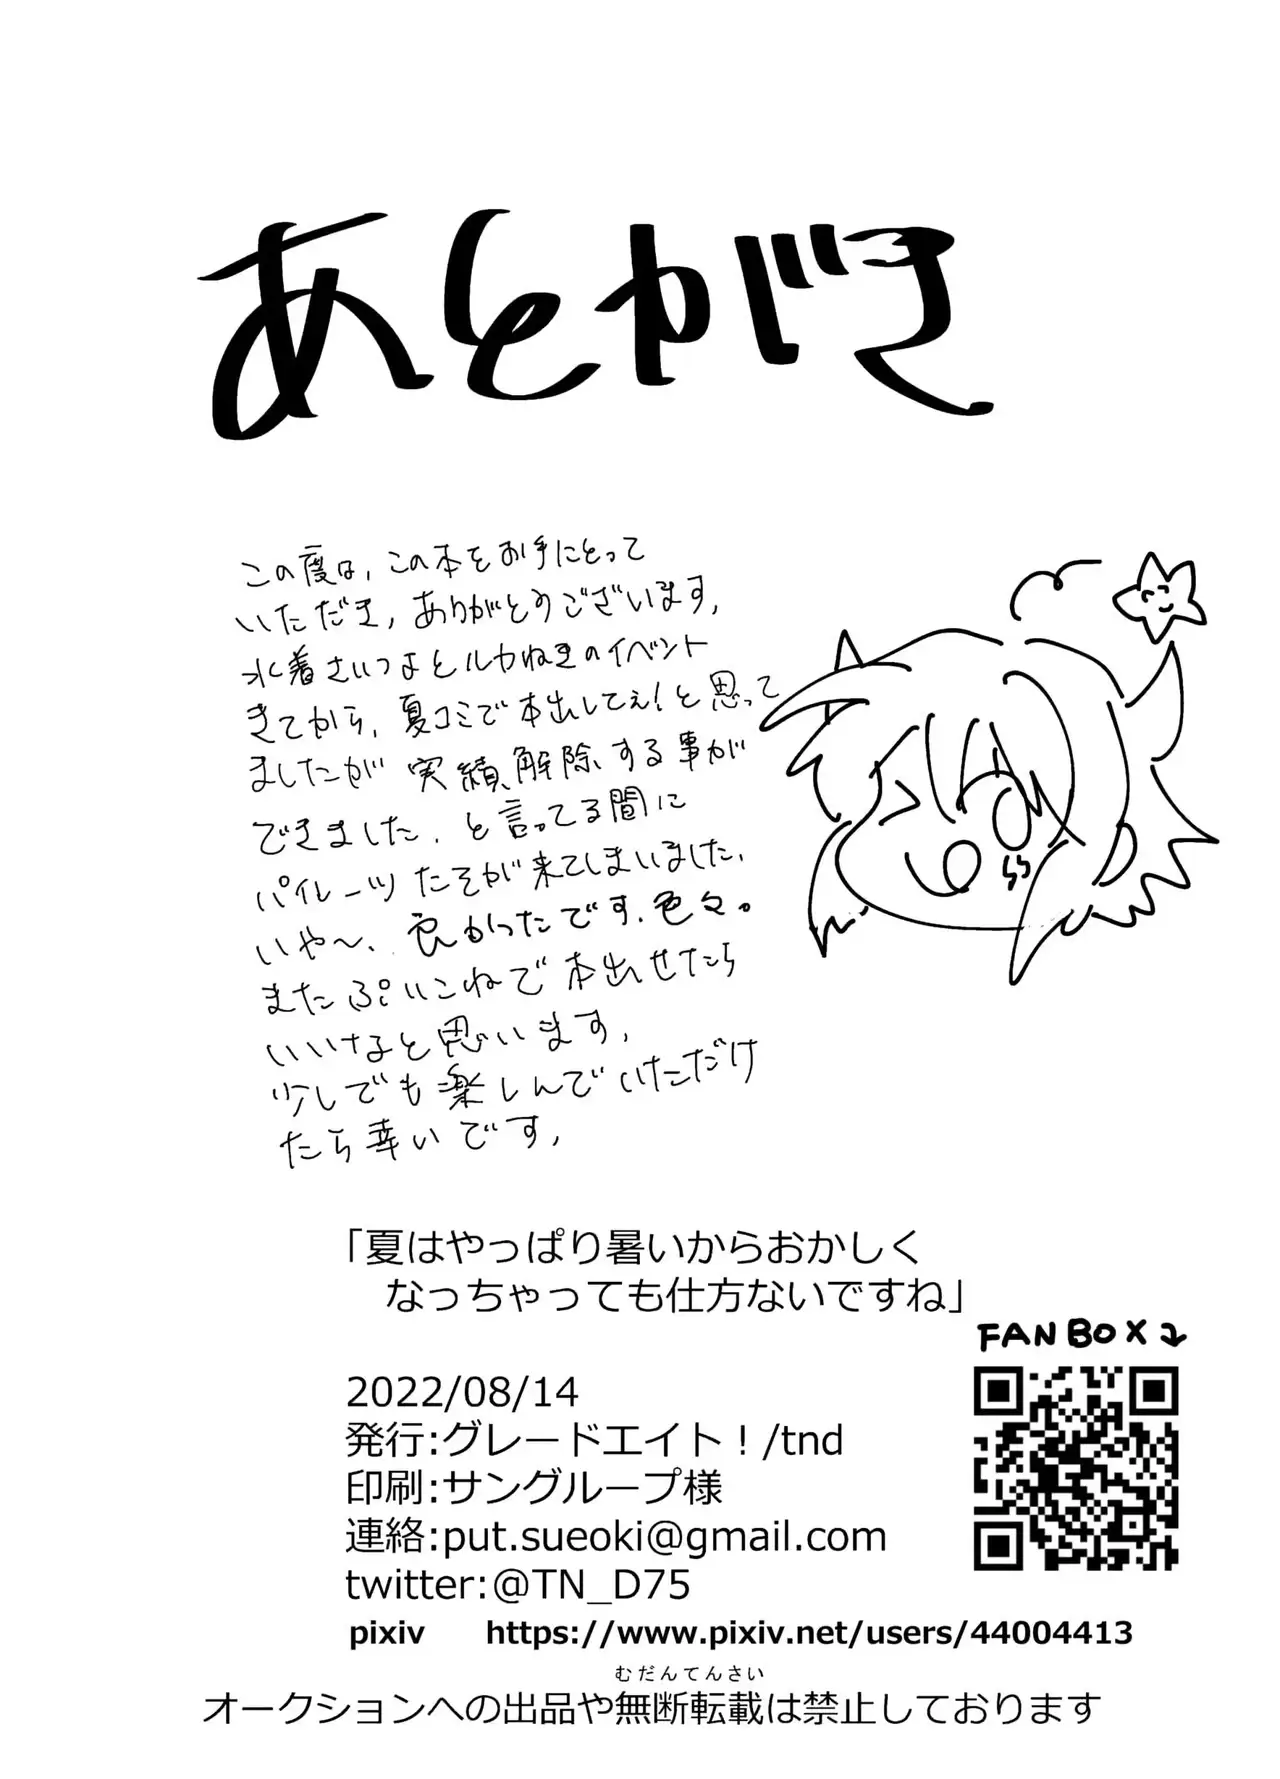 あとがき
この度は、この本をお手にとって
いただき、ありがとうございます、
水着さいつよとルカねきのイベント
きてから、夏コミで本出してぇ！と思って
ましたが 実績解除する事が
できました、と言ってる間に
パイレーツたそが来てしまいました、
いや〜、良かったです、色々。
またぷいこねで本出せたら
いいなと思います、
少しでも楽しんでいただけ
たら幸いです、
「夏はやっぱり暑いからおかしく
なっちゃっても仕方ないですね」
FANBOX
2022/08/14
発行:グレードエイト！/tnd
印刷:サングループ様
連絡:put.sueoki@gmail.com
twitter:@TN_D75
pixiv https://www.pixiv.net/users/44004413
むだんてんさい
オークションへの出品や無断転載は禁止しております